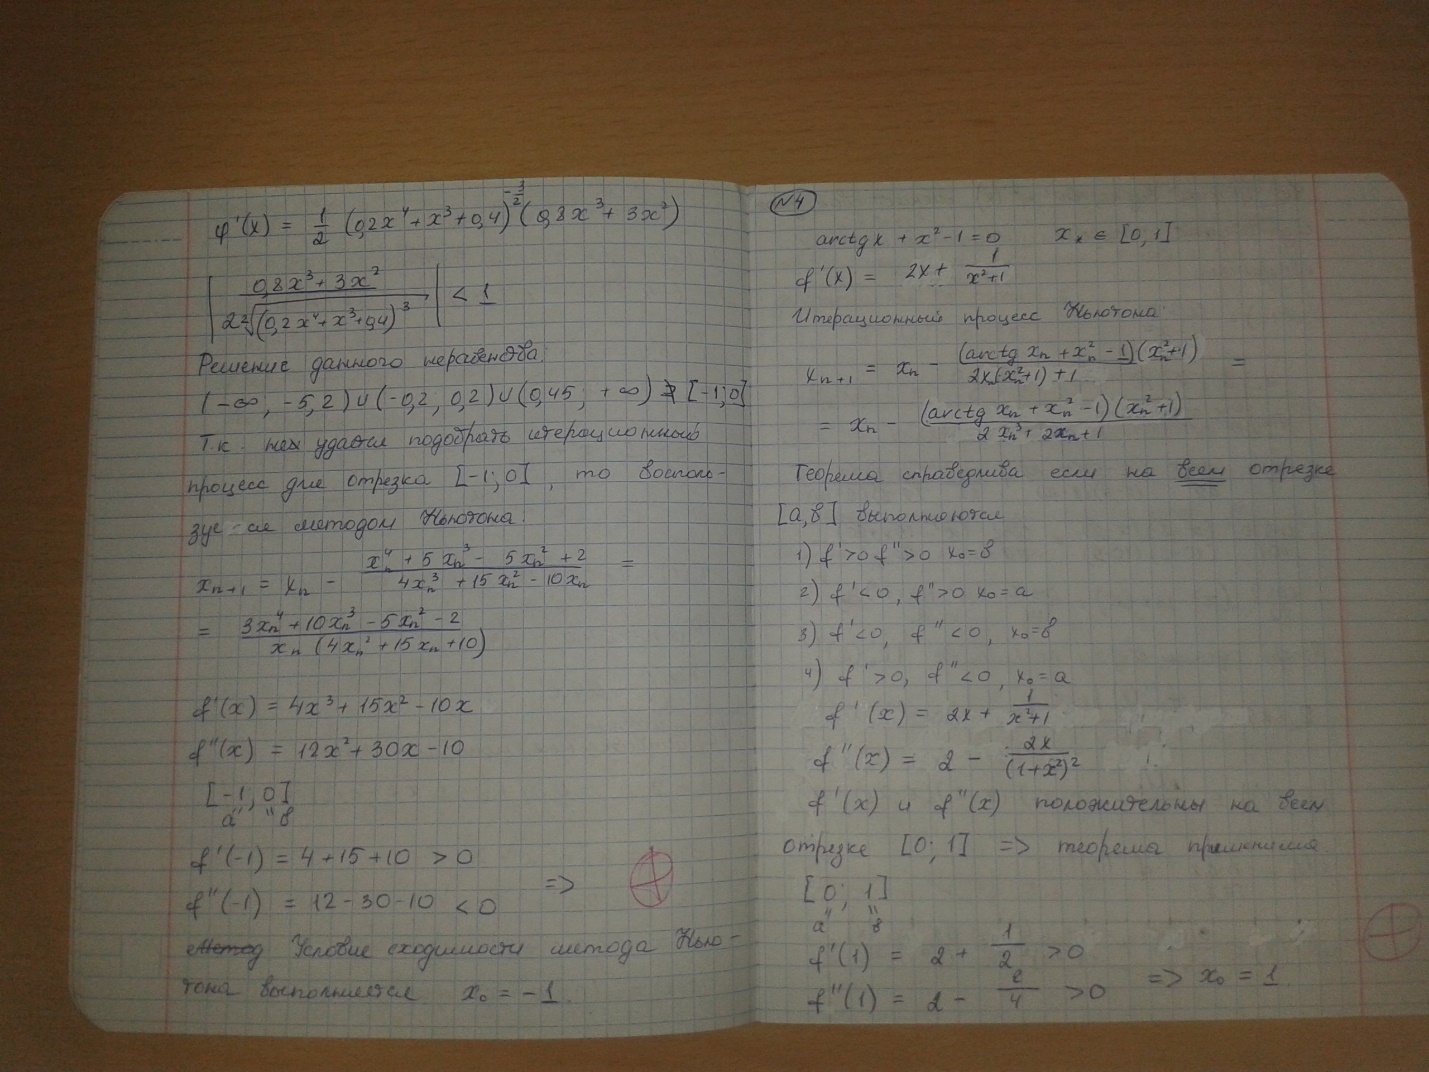 φ'(x) = 1/2 (0,2x⁴ + x³ + 0,4)^(-3/2) (0,8x³ + 3x²)
| (0,8x³ + 3x²) / (2 ²√(0,2x⁴ + x³ + 0,4)³) | < 1
Решение данного неравенства:
(-∞; -5,2) ∪ (-0,2; 0,2) ∪ (0,45; +∞) ∌ [-1; 0]
Т.к. удается подобрать итерационный
процесс для отрезка [-1; 0], то восполь-
зуемся методом Ньютона.
xₙ₊₁ = xₙ - (xₙ⁴ + 5xₙ³ - 5xₙ² + 2) / (4xₙ³ + 15xₙ² - 10xₙ) =
= (3xₙ⁴ + 10xₙ³ - 5xₙ² - 2) / (xₙ (4xₙ² + 15xₙ + 10))
f'(x) = 4x³ + 15x² - 10x
f''(x) = 12x² + 30x - 10
[-1, 0]
a" "в
f'(-1) = 4 + 15 + 10 > 0
f''(-1) = 12 - 30 - 10 < 0 =>
Метод Условие сходимости метода Нью-
тона выполняется x₀ = -1.
№4
arctg x + x² - 1 = 0 xₓ ∈ [0, 1]
f'(x) = 2x + 1/(x²+1)
Итерационный процесс Ньютона:
xₙ₊₁ = xₙ - (arctg xₙ + xₙ² - 1)(xₙ²+1) / (2xₙ(xₙ²+1) + 1) =
= xₙ - (arctg xₙ + xₙ² - 1)(xₙ²+1) / (2xₙ³ + 2xₙ + 1)
Теорема справедлива если на всем отрезке
[a, в] выполняются
1) f' > 0 f'' > 0 x₀ = в
2) f' < 0, f'' > 0 x₀ = a
3) f' < 0, f'' < 0, x₀ = в
4) f' > 0, f'' < 0, x₀ = a
f'(x) = 2x + 1/(x²+1)
f''(x) = 2 - 2x/(1+x²)²
f'(x) и f''(x) положительны на всем
отрезке [0; 1] => теорема применима.
[0; 1]
a" "в
f'(1) = 2 + 1/2 > 0
f''(1) = 2 - 2/4 > 0 => x₀ = 1.